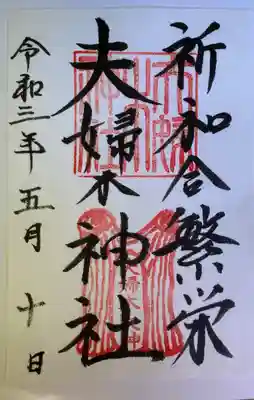 祈和合繁栄
夫婦木神社
令和三年五月十日